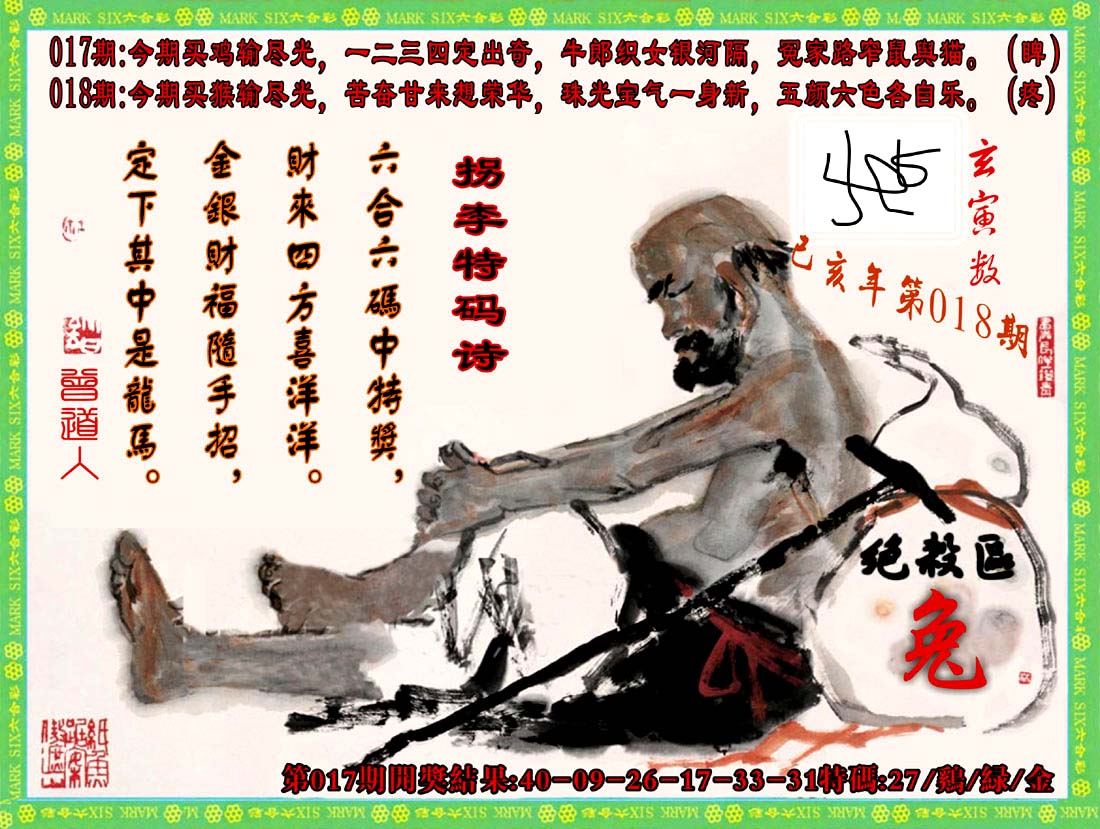 MARK SIX六合彩
017期:今期买鸡输尽光，一二三四定出奇，牛郎织女银河隔，冤家路窄鼠與猫。（睥）
018期:今期买猴输尽光，苦奋甘来想荣华，珠光宝气一身新，五颜六色各自乐。（疼）
玄寅数
己亥年第018期
拐李特码诗
六合六碼中特獎，
財來四方喜洋洋。
金銀財福隨手招，
定下其中是龍馬。
曾道人
绝殺區
兔
第017期開獎結果:40-09-26-17-33-31特碼:27/鷄/緑/金